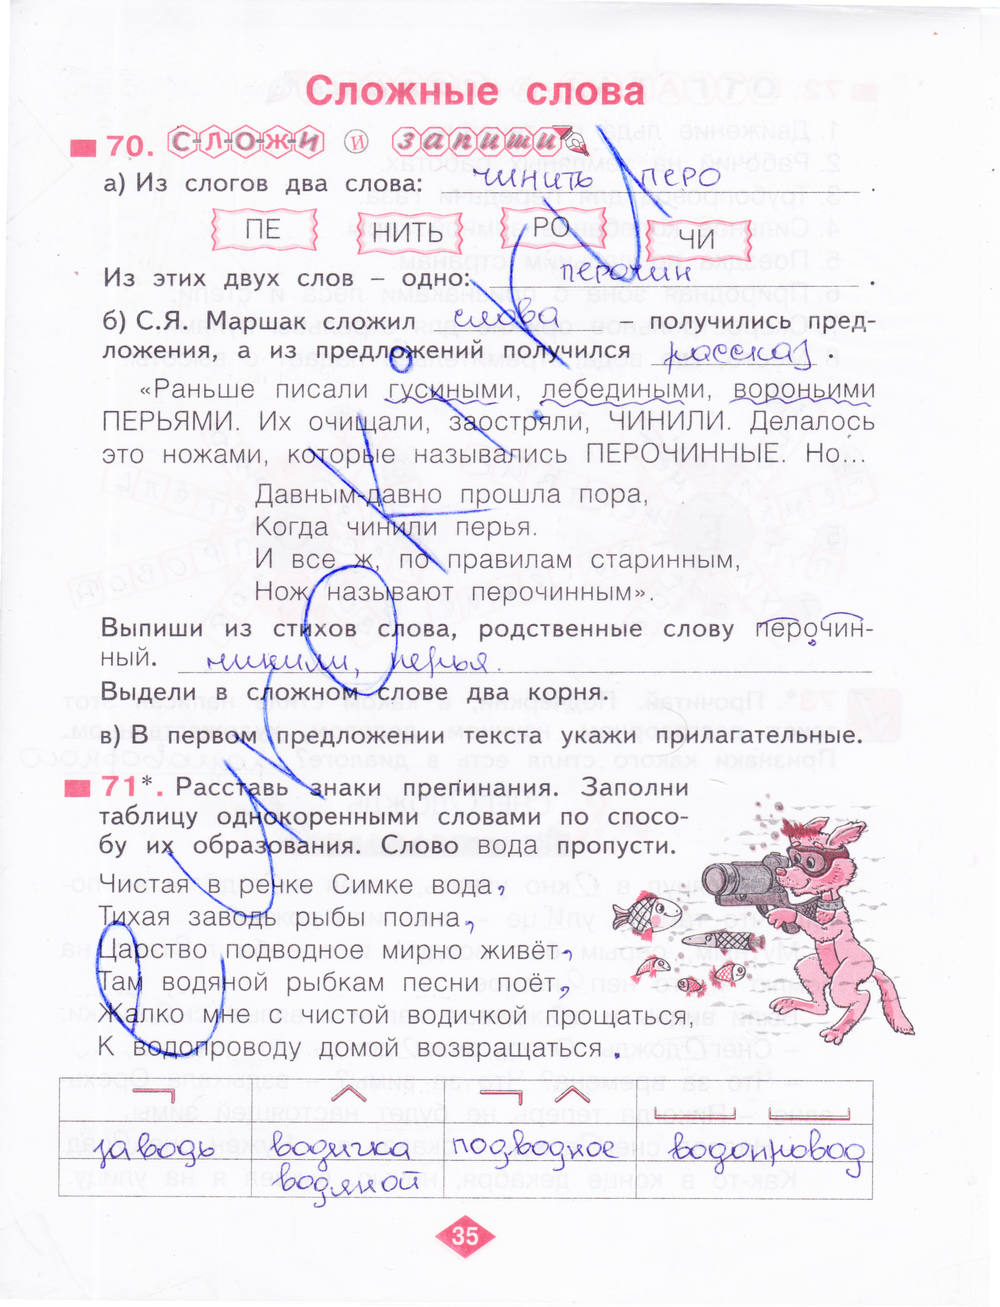 Сложные слова
70. С-Л-О-Ж-И И запиши
а) Из слогов два слова: чинить перо.
ПЕ НИТЬ РО ЧИ
Из этих двух слов – одно: перочин.
б) С.Я. Маршак сложил слова – получились пред-
ложения, а из предложений получился рассказ.
«Раньше писали гусиными, лебедиными, вороньими
ПЕРЬЯМИ. Их очищали, заостряли, ЧИНИЛИ. Делалось
это ножами, которые назывались ПЕРОЧИННЫЕ. Но...
Давным-давно прошла пора,
Когда чинили перья.
И все ж, по правилам старинным,
Нож называют перочинным».
Выпиши из стихов слова, родственные слову перочин-
ный. чинили, перья.
Выдели в сложном слове два корня.
в) В первом предложении текста укажи прилагательные.
71*. Расставь знаки препинания. Заполни
таблицу однокоренными словами по спосо-
бу их образования. Слово вода пропусти.
Чистая в речке Симке вода,
Тихая заводь рыбы полна,
Царство подводное мирно живёт,
Там водяной рыбкам песни поёт,
Жалко мне с чистой водичкой прощаться,
К водопроводу домой возвращаться.
заводь водичка подводное
водяной
35